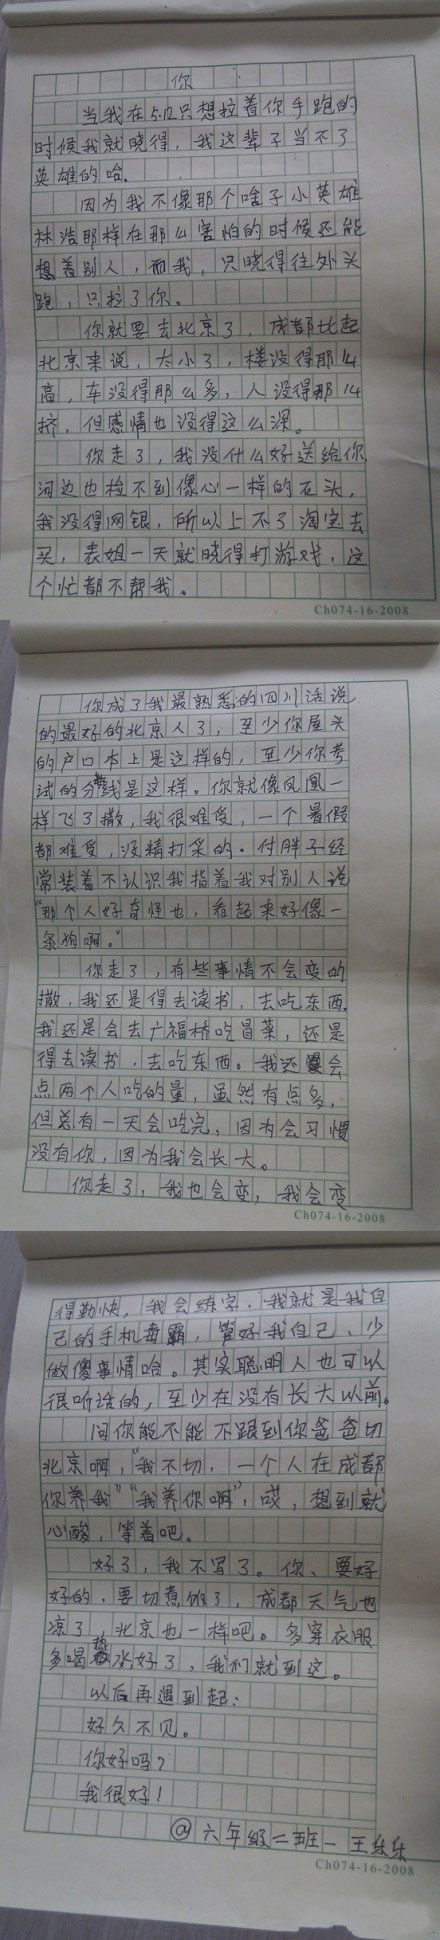 你
当我在5.12只想拉着你手跑的
时候我就晓得，我这辈子当不了
英雄的哈。
因为我不像那个啥子小英雄
林浩那样在那么害怕的时候还能
想着别人，而我，只晓得往外头
跑，只拉了你。
你就要去北京了，成都比起
北京来说，太小了，楼没得那么
高，车没得那么多，人没得那么
挤，但感情也没得这么深。
你走了，我没什么好送给你
河边也捡不到像心一样的石头，
我没得网银，所以上不了淘宝去
买，表姐一天就晓得打游戏，这
个忙都不帮我。
Ch074-16-2008
你成了我最熟悉的四川话说
的最好的北京人了，至少你屋头
的户口本上是这样的，至少你考
试的分数线是这样。你就像凤凰一
样飞了撒，我很难受，一个暑假
都难受，没精打采的。付胖子经
常装着不认识我指着我对别人说
“那个人好奇怪也，看起来好像一
条狗啊。”
你走了，有些事情不会变的
撒，我还是得去读书，去吃东西。
我还是会去广福桥吃冒菜，还是
得去读书，去吃东西。我还会
点两个人吃的量，虽然有点多，
但总有一天会吃完，因为会习惯
没有你，因为我会长大。
你走了，我也会变，我会变
Ch074-16-2008
得勤快，我会练字，我就是我自
己的手机毒霸，管好我自己，少
做傻事情哈。其实聪明人也可以
很听话的，至少在没有长大以前。
问你能不能不跟到你爸爸切
北京啊，“我不切，一个人在成都
你养我”“我养你啊”，哎，想到就
心酸，等着吧。
好了，我不写了。你、要好
好的，要切惹饿了，成都天气也
凉了，北京也一样吧。多穿衣服
多喝热水好了，我们就到这。
以后再遇到起：
好久不见。
你好吗？
我很好！
@六年级二班一王乐乐
Ch074-16-2008